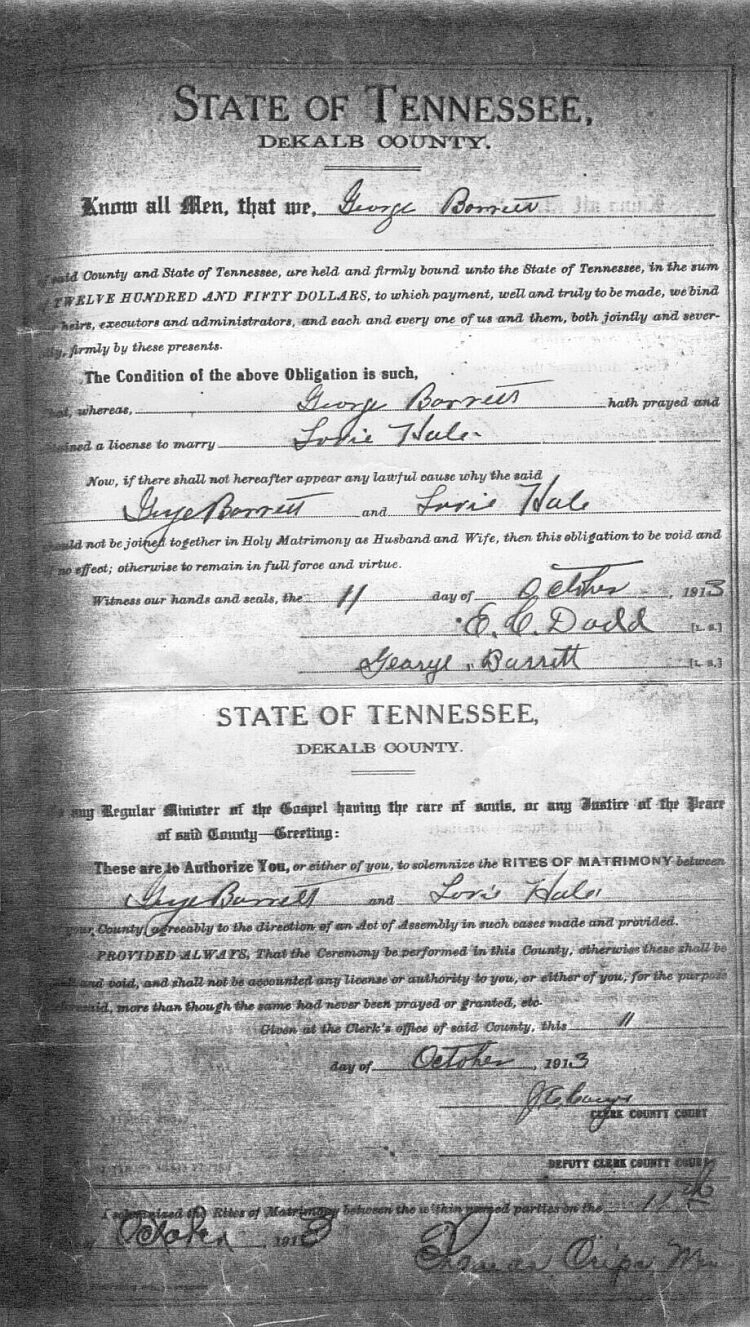 STATE OF TENNESSEE,
DEKALB COUNTY.
Know all Men, that we, George Barrett
said County and State of Tennessee, are held and firmly bound unto the State of Tennessee, in the sum
TWELVE HUNDRED AND FIFTY DOLLARS, to which payment, well and truly to be made, we bind
heirs, executors and administrators, and each and every one of us and them, both jointly and sever-
firmly by these presents.
The Condition of the above Obligation is such,
whereas, George Barrett hath prayed and
a license to marry Lovie Hale
Now, if there shall not hereafter appear any lawful cause why the said
George Barrett and Lovie Hale
not be joined together in Holy Matrimony as Husband and Wife, then this obligation to be void and
no effect; otherwise to remain in full force and virtue.
Witness our hands and seals, the 11 day of October, 1913
E. C. Dodd [L. S.]
George Barrett [L. S.]
STATE OF TENNESSEE,
DEKALB COUNTY.
any Regular Minister of the Gospel having the care of souls, or any Justice of the Peace
of said County—Greeting:
These are to Authorize You, or either of you, to solemnize the RITES OF MATRIMONY between
George Barrett and Lovie Hale
your County, agreeably to the direction of an Act of Assembly in such cases made and provided.
PROVIDED ALWAYS, That the Ceremony be performed in this County, otherwise these shall be
and void, and shall not be accounted any license or authority to you, or either of you, for the purpose
more than though the same had never been prayed or granted, etc.
Given at the Clerk's office of said County, this 11
day of October, 1913
CLERK COUNTY COURT
DEPUTY CLERK COUNTY COURT
I solemnized the Rites of Matrimony between the within named parties on the 11th
October, 1913